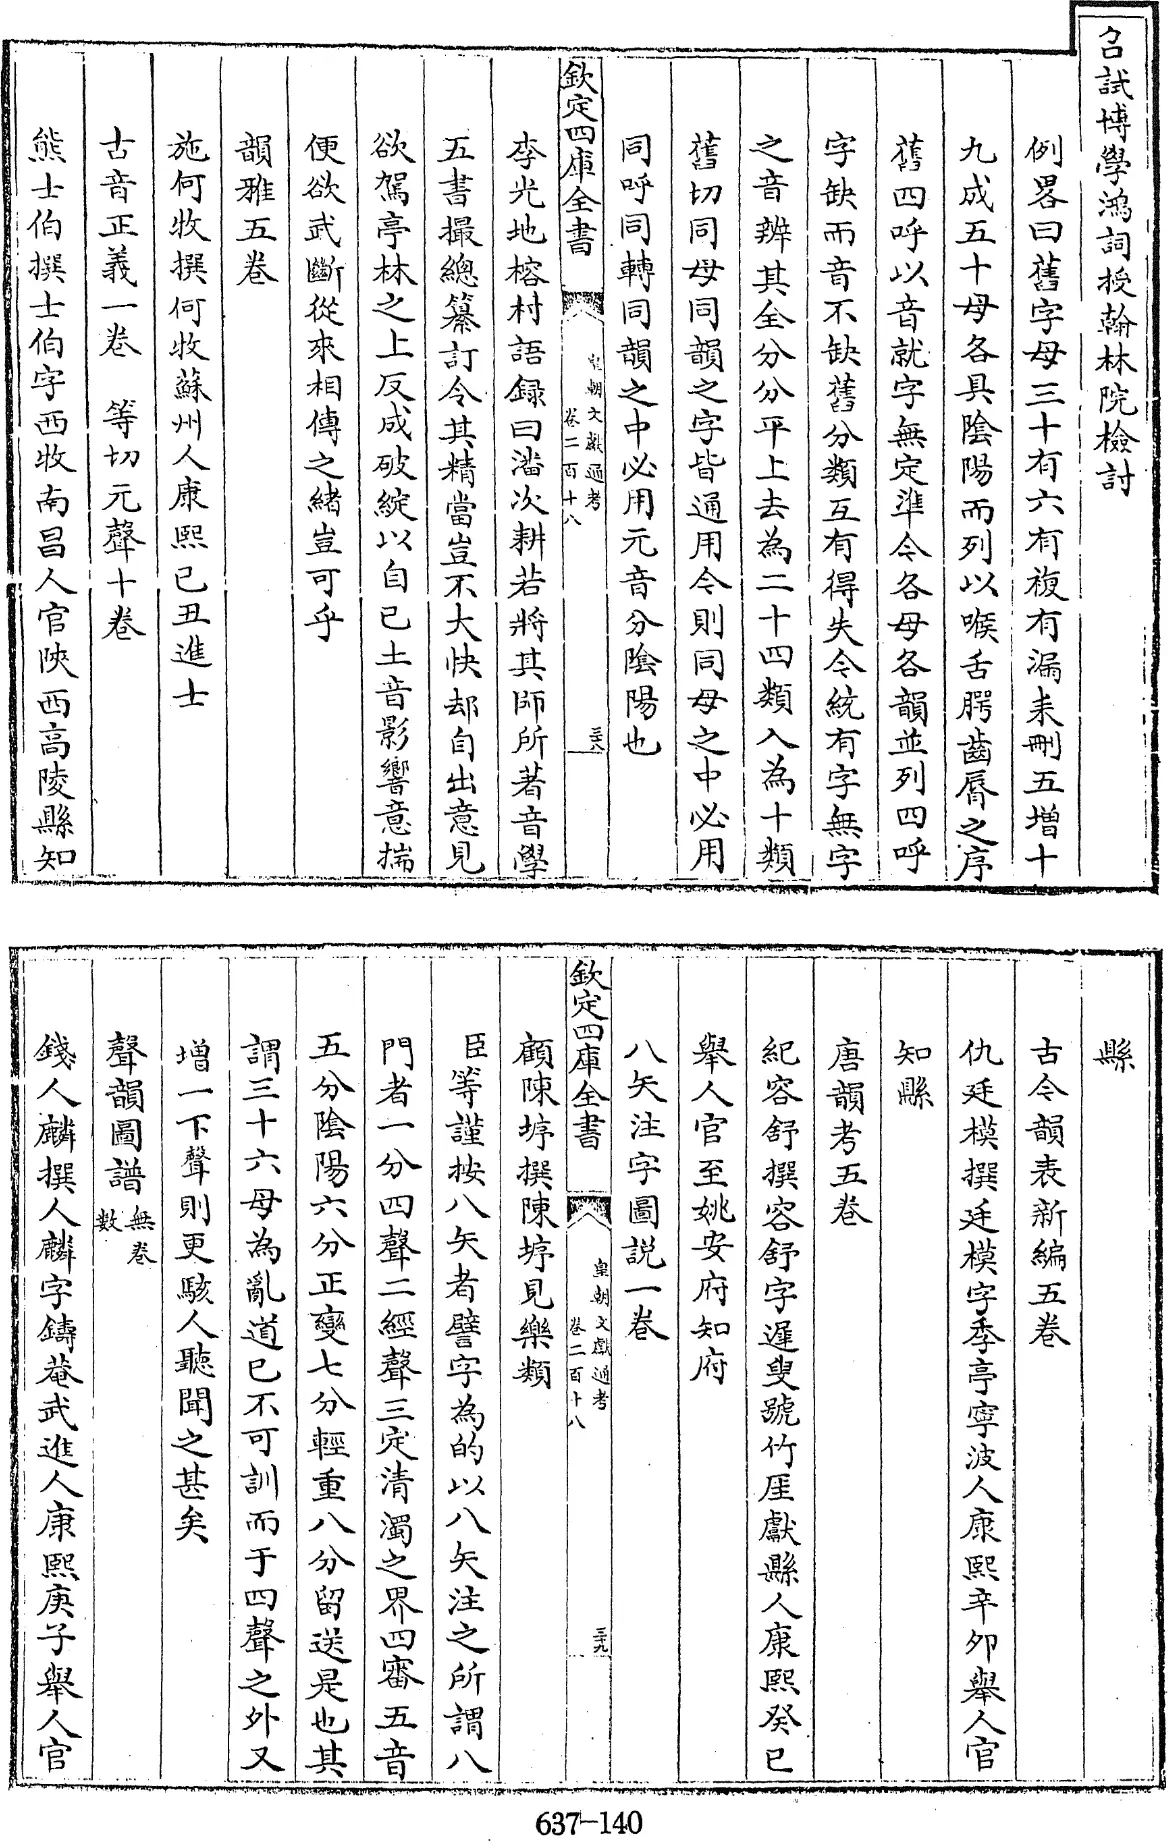 召試博學鴻詞授翰林院檢討
例畧曰舊字母三十有六有複有漏耒刪五增十
九成五十母各具陰陽而列以喉舌腭齒脣之序
舊四呼以音就字無定準今各母各韻並列四呼
字缺而音不缺舊分類互有得失今統有字無字
之音辨其全分分平上去為二十四類入為十類
舊切同母同韻之字皆通用今則同母之中必用
同呼同轉同韻之中必用元音分陰陽也
欽定四庫全書
皇朝文獻通考
卷二百十八
三十八
李光地榕村語録曰潘次耕若將其師所著音學
五書撮總纂訂令其精當豈不大快却自出意見
欲駕亭林之上反成破綻以自已土音影響意揣
便欲武斷從來相傳之緒豈可乎
韻雅五卷
施何牧撰何牧蘇州人康熙己丑進士
古音正義一卷 等切元聲十卷
熊士伯撰士伯字西牧南昌人官陜西高陵縣知
縣
古今韻表新編五卷
仇廷模撰廷模字季亭寧波人康熙辛卯舉人官
知縣
唐韻考五卷
紀容舒撰容舒字遲叟號竹厓獻縣人康熙癸巳
舉人官至姚安府知府
八矢注字圖説一卷
顧陳垿撰陳垿見樂類
欽定四庫全書
皇朝文獻通考
卷二百十八
三十九
臣等謹按八矢者譬字為的以八矢注之所謂八
門者一分四聲二經聲三定清濁之界四審五音
五分陰陽六分正變七分輕重八分留送是也其
謂三十六母為亂道已不可訓而于四聲之外又
增一下聲則更駭人聽聞之甚矣
聲韻圖譜無卷數
錢人麟撰人麟字鑄菴武進人康熙庚子舉人官
637-140